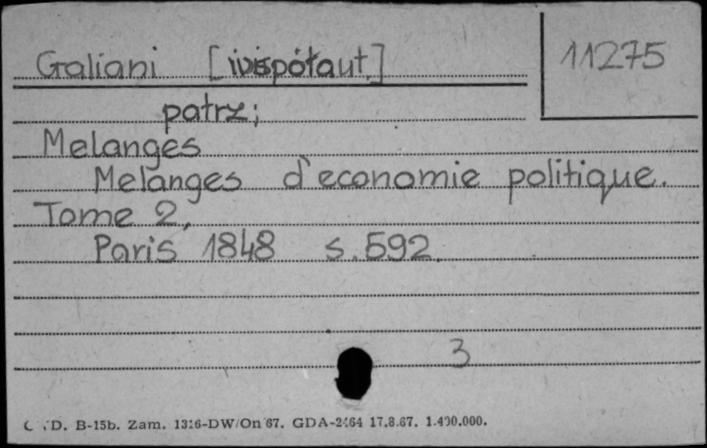 Galiani [współaut.]
11275
patrz;
Melanges
Melanges d'economie politique.
Tome 2,
Paris 1848 s. 592.
3
D. B-15b. Zam. 1326-DW/On 67. GDA-2464 17.8.67. 1.400.000.